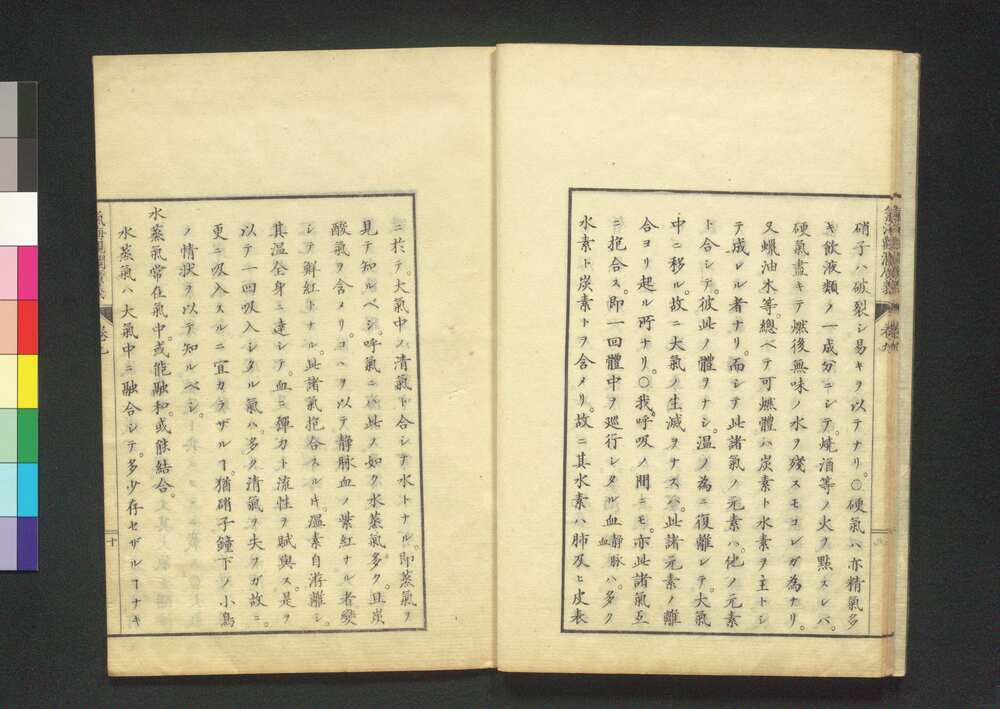 硝子ハ破裂シ易キヲ以テナリ。〇硬氣ハ亦精氣多
キ飲液類ノ一成分ニシテ。焼酒等ノ火ヲ點スレバ。
硬氣盡キテ燃後無味ノ水ヲ殘スモコレガ為ナリ。
又蠟油木等。總ベテ可燃體ハ炭素ト水素ヲ主トシ
テ成レル者ナリ。而シテ此諸氣ノ元素ハ。他ノ元素
ト合シテ。彼此ノ體ヲナシ。溫ノ為ニ復離レテ。大氣
中ニ移ル。故ニ大氣ノ生滅ヲナスハ。此諸元素ノ離
合ヨリ起ル所ナリ。〇我呼吸ノ間ニモ。亦此諸氣互
ニ抱合ス。即一回體中ヲ巡行シタル血靜脈血ハ。多ク
水素ト炭素トヲ含メリ。故ニ其水素ハ肺及ヒ皮表
卷九
九
ニ於テ。大氣中ノ清氣ト合シテ水トナル。即蒸氣ヲ
見テ知ルベシ。呼氣ニハ此ノ如ク水蒸氣多ク。且炭
酸氣ヲ含メリ。コハヲ以テ靜脈血ノ紫紅ナル者變
シテ鮮紅トナル。此諸氣抱合スル片。溫素自游離シ。
其溫全身ニ達シテ。血ニ彈力ト流性ヲ賦與ス。是ヲ
以テ一回吸入シタル氣ハ。多ク清氣ヲ失フガ故ニ。
更ニ吸入スルニ宜カラザルヿ。猶硝子鐘下ノ小鳥
ノ情状ヲ以テ知ルベシ。
水蒸氣常在氣中。或能融和。或能結合。
水蒸氣ハ大氣中ニ融合シテ。多少存セザルヿナキ
卷九
十